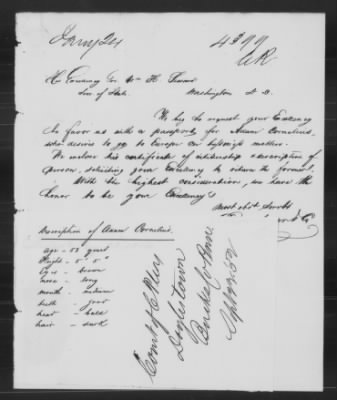 4399
H. Excellency Hon. Wm H. Seward
Sec of State.
Washington D. C.
We beg to request your Excellency
to favor us with a passport for Adam Cornelius,
who desires to go to Europe on business matters.
We enclose his certificate of citizenship & description of
person, soliciting your Excellency to return the former.
With the highest consideration, we have the
honor to be your Excellency's
most obt Servts
Description of Adam Cornelius.
age - 53 years
Height - 5' 5"
Eyes - brown
nose - long
mouth - medium
teeth - good
head - bald
hair - dark
Court of C Pleas
Doylestown
Bucks Co Penna